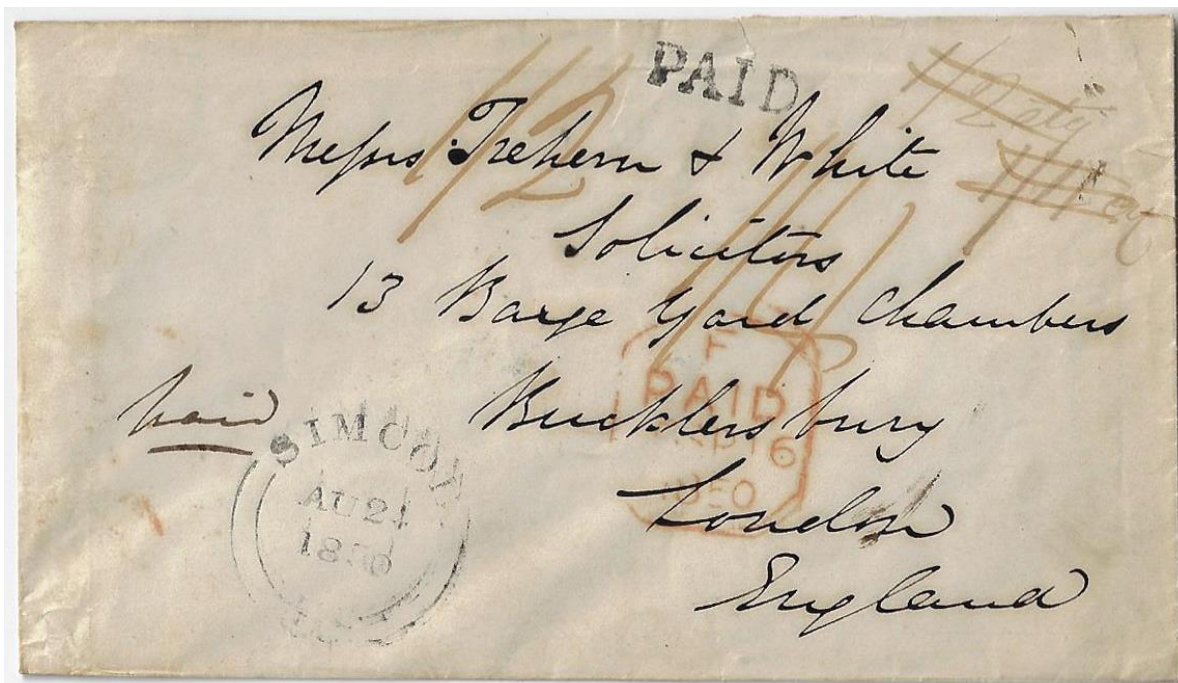 PAID
1/2
Messrs. Trehern & White
Solicitors
13 Barge Yard Chambers
Bucklersbury
London
England
paid
SIMCOE
AU 24
1850
F
PAID
16
1850